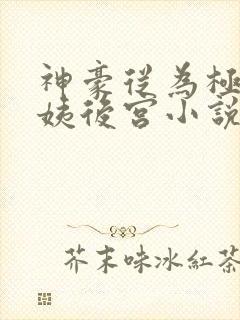 神豪從為極
姨後宮小說
芥末味冰紅茶